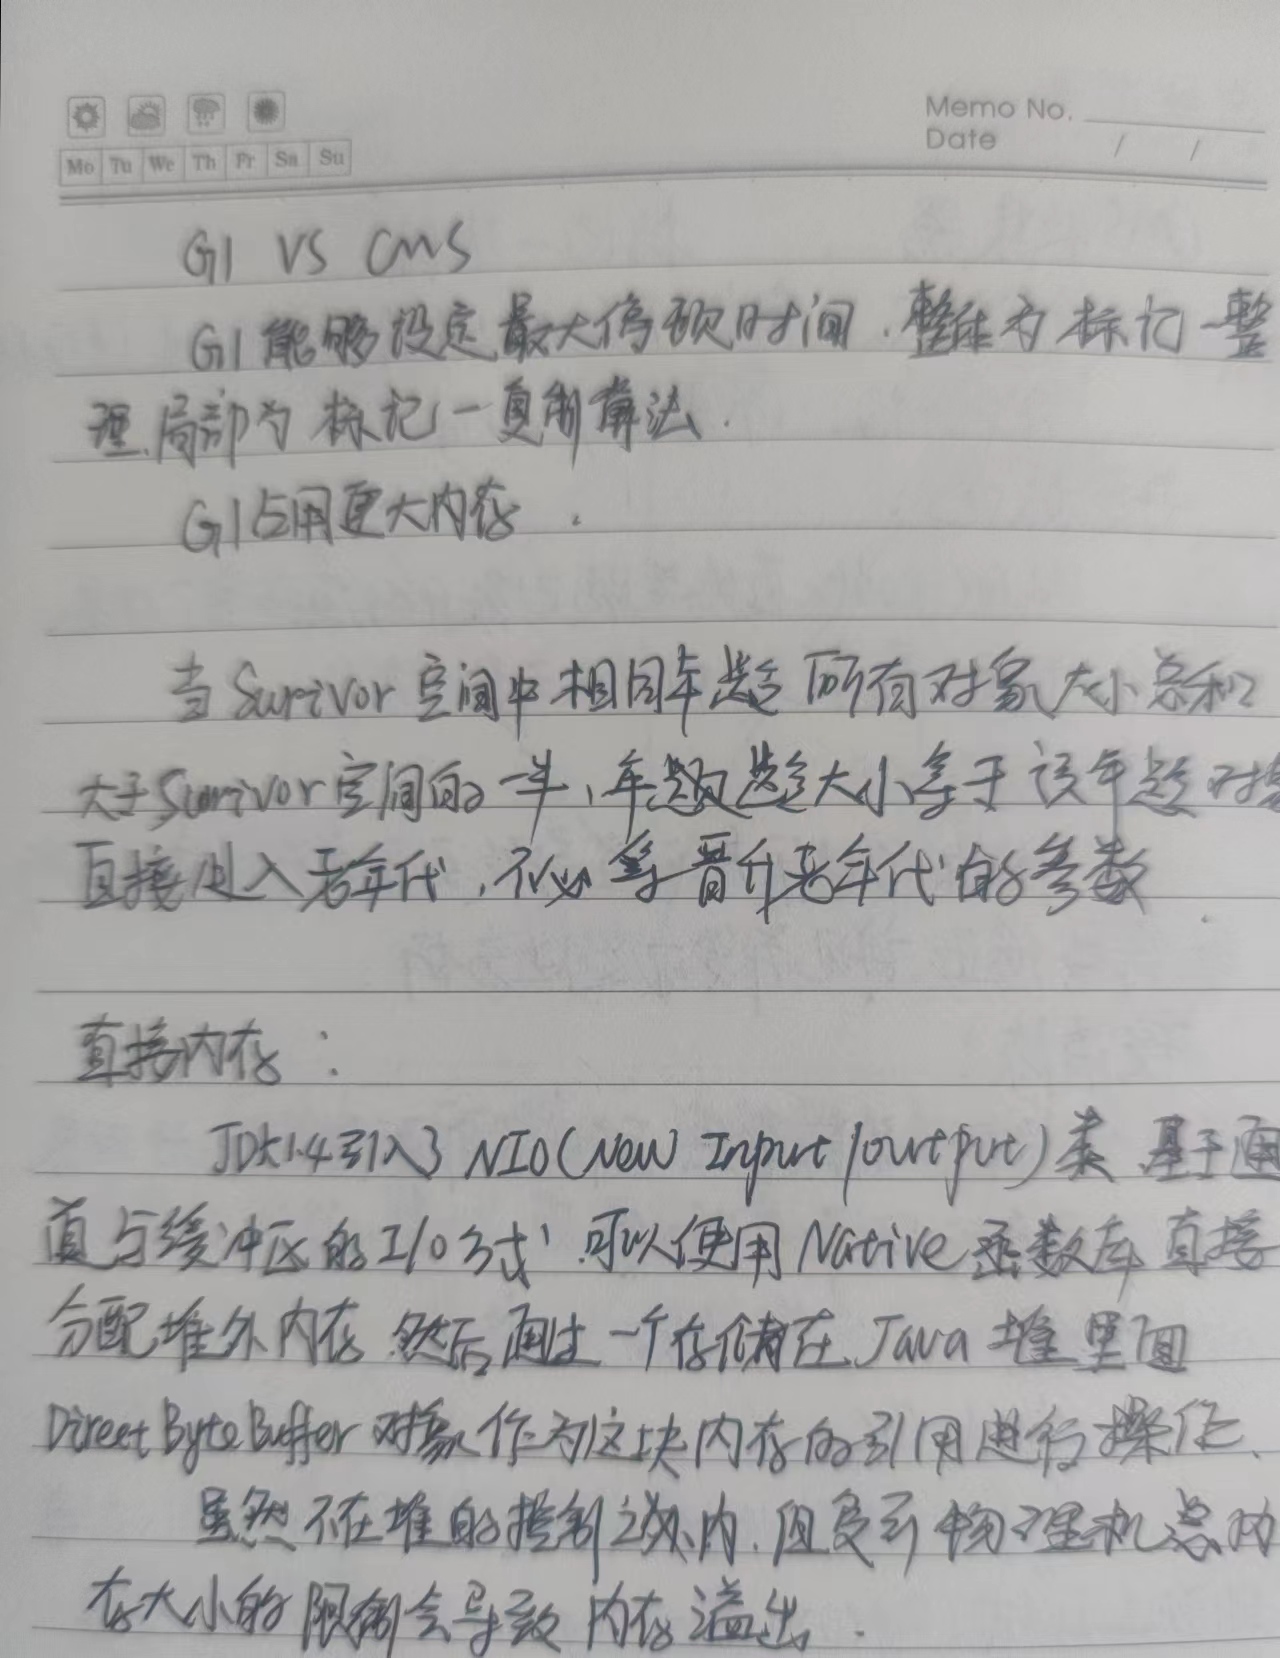 Memo No.
Date / /
Mo Tu We Th Fr Sa Su
G1 VS CMS
G1能够设定最大停顿时间.整体为标记一整
理.局部为标记一复制算法.
G1占用更大内存.
当Survivor空间中相同年龄所有对象大小总和
大于Survivor空间的一半,年龄大小等于该年龄对象
直接进入老年代,不必等晋升老年代的参数
直接内存:
JDK1.4引入了NIO(New Input/output)类.基于通
道与缓冲区的I/O方式,可以使用Native函数库直接
分配堆外内存.然后通过一个存储在Java堆里面
DirectByteBuffer对象作为这块内存的引用进行操作.
虽然不在堆的控制之内,但受到物理机总内
存大小的限制会导致内存溢出.